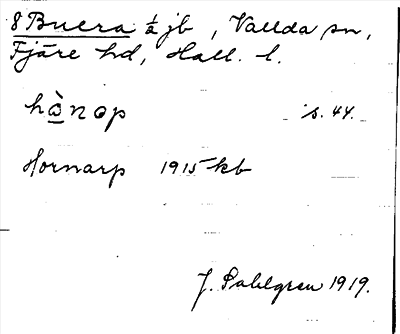 8 Buera ½ jb, Vallda sn,
Fjäre hd, Hall. l.
hὰnop s. 44.
Hornarp 1915 kb
J. Sahlgren 1919.